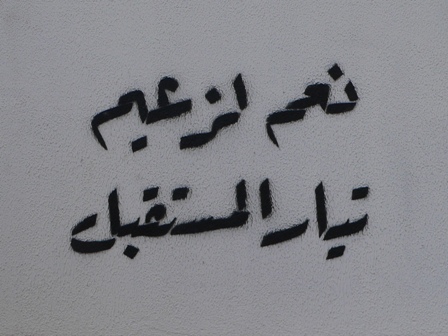 نعم لزعيم
تيار المستقبل